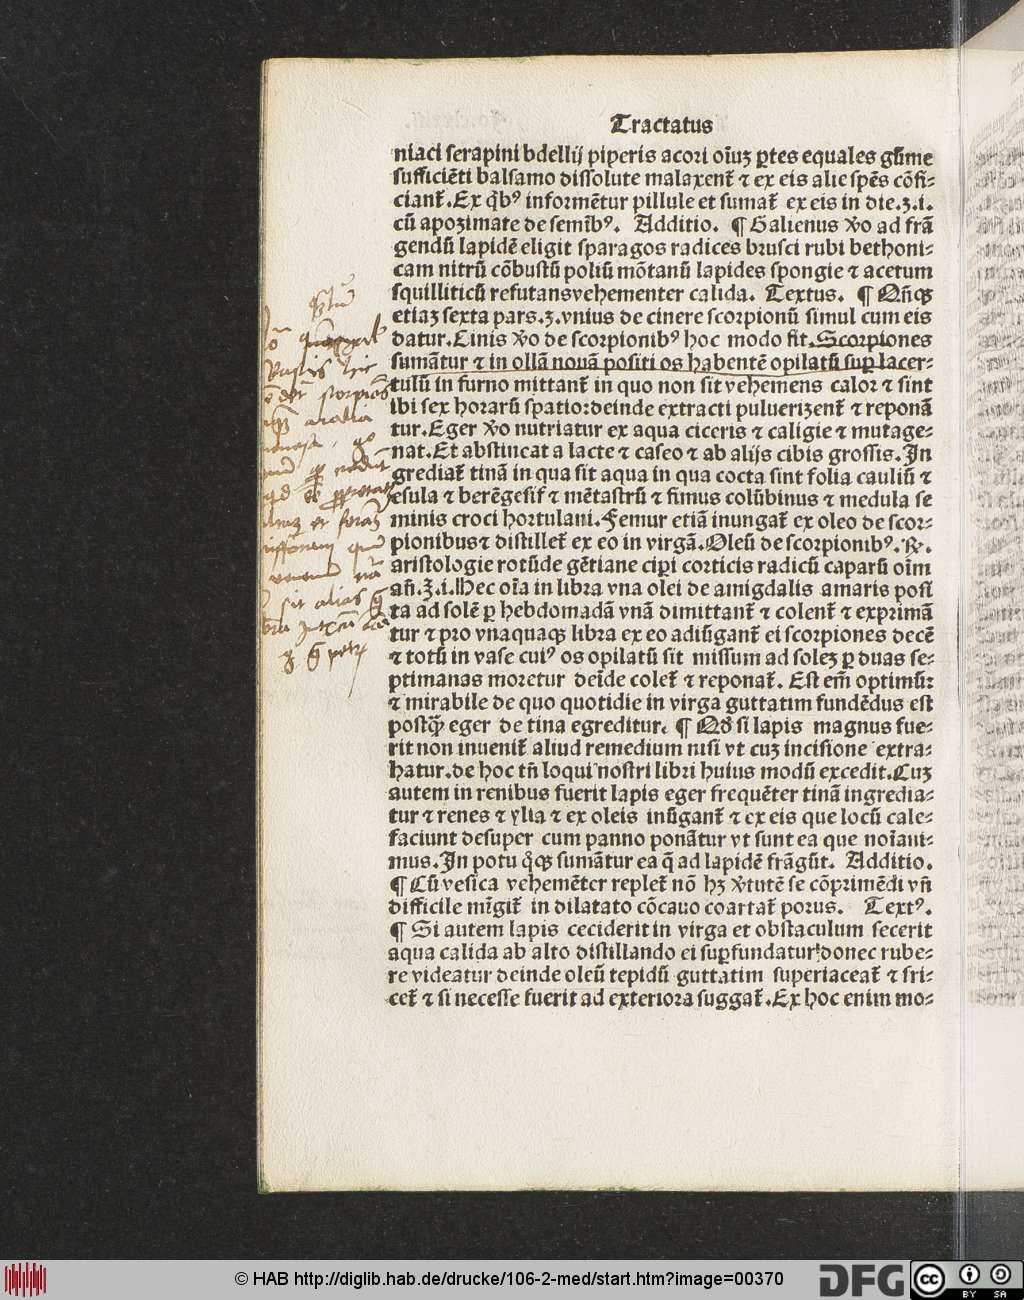 Tractatus
niaci serapini bdellij piperis acori oīuꝫ ꝑtes equales gūme
sufficiēti balsamo dissolute malaxent̄ ⁊ ex eis alie spēs cōfi⸗
ciant̄. Ex q̄bꝰ informētur pillule et sumat̄ ex eis in die.ʒ.i.
cū apozimate de semībꝰ. Additio. ¶ Galienus v̄o ad frā
gendū lapidē eligit sparagos radices brusci rubi bethoni⸗
cam nitrū cōbustū poliū mōtanū lapides spongie ⁊ acetum
squilliticū refutans vehementer calida. Textus. ¶ Qn̄qꝫ
etiaꝫ sexta pars.ʒ.vnius de cinere scorpionū simul cum eis
datur. Cinis v̄o de scorpionibꝰ hoc modo fit. Scorpiones
sumātur ⁊ in ollā nouā positi os habentē opilatū suꝑ lacer⸗
tulū in furno mittant̄ in quo non sit vehemens calor ⁊ sint
ibi sex horarū spatio: deinde extracti puluerizent̄ ⁊ reponā
tur. Eger v̄o nutriatur ex aqua ciceris ⁊ caligie ⁊ mutage⸗
nat. Et abstineat a lacte ⁊ caseo ⁊ ab alijs cibis grossis. In
grediat̄ tinā in qua sit aqua in qua cocta sint folia cauliū ⁊
esula ⁊ berēgesif ⁊ mētastrū ⁊ fimus colūbinus ⁊ medula se
minis croci hortulani. Femur etiā inungat̄ ex oleo de scor⸗
pionibus ⁊ distillet̄ ex eo in virgā. Oleū de scorpionibꝰ. ℞.
aristologie rotūde gētiane ciꝑi corticis radicū caparū oīm
an̄.ʒ.i. Hec oīa in libra vna olei de amigdalis amaris posi
ta ad solē ꝑ hebdomadā vnā dimittant̄ ⁊ colent̄ ⁊ exprimā
tur ⁊ pro vnaquaqꝫ libra ex eo adiūgant̄ ei scorpiones decē
⁊ totū in vase cuiꝰ os opilatū sit missum ad soleꝫ ꝑ duas se⸗
ptimanas moretur deīde colet̄ ⁊ reponat̄. Est em̄ optimūꝫ
⁊ mirabile de quo quotidie in virga guttatim fundēdus est
postqꝫ̄ eger de tina egreditur. ¶ Qd̄ si lapis magnus fue⸗
rit non inuenit̄ aliud remedium nisi vt cuꝫ incisione extra⸗
hatur. de hoc tn̄ loqui nostri libri huius modū excedit. Cuꝫ
autem in renibus fuerit lapis eger frequēter tinā ingredia⸗
tur ⁊ renes ⁊ ylia ⁊ ex oleis inūgant̄ ⁊ ex eis que locū cale⸗
faciunt desuper cum panno ponātur vt sunt ea que noīaui⸗
mus. In potu q̄qꝫ sumātur ea q̄ ad lapidē frāgūt. Additio.
¶ Cū vesica vehemēter replet̄ nō hꝫ v̄tutē se cōprimēdi vn̄
difficile mīgit̄ in dilatato cōcauo coartat̄ porus. Textꝰ.
¶ Si autem lapis ceciderit in virga et obstaculum fecerit
aqua calida ab alto distillando ei suꝑfundatur: donec rube⸗
re videatur deinde oleū tepidū guttatim superiaceat̄ ⁊ fri⸗
cet̄ ⁊ si necesse fuerit ad exteriora suggat̄. Ex hoc enim mo⸗
© HAB http://diglib.hab.de/drucke/106-2-med/start.htm?image=00370
DFG
cc
BY SA